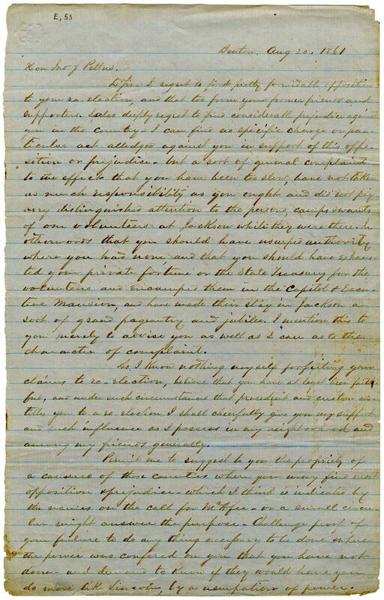 E, 53
Benton, Aug 20, 1861
Hon Jno J. Pettus.
Dr Sir I regret to find pretty formidable opposition
to your re-election, and that too from your former friends and
supporters. I also deeply regret to find considerable prejudice against
you in the Country. I can find no specific charge or par-
ticular act alledged against you in support of this oppo-
sition or prejudice - but a sort of general complaint
to the effect that you have been too slow, have not taken
as much responsibility as you ought and did not pay
very distinguished attention to the persons, camps & wants
of our volunteers at Jackson while they were there. In
other words that you should have usurped authority
where you had none, and that you should have exhaus-
ted your private fortune or the State Treasury for the
volunteers and encamped them in the Capitol & Execu-
tive Mansion, and have made their stay in Jackson a
sort of grand pageantry and jubilee. I mention this to
you merely to advise you as well as I can as to the
character of complaint.
As I know nothing myself forfeiting your
claims to re-election, believe that you have at least been faith-
ful, and under such circumstances that precedent and custom en-
title you to a re-election I shall cheerfully give you my support
and such influence as I possess in my neighborhood and
among my friends generally.
Permit me to suggest to you the propriety of
a canvass of those counties where you may find most
opposition & prejudice - which I think is indicated by
the names on the call for McAfee - or a small circu-
lar might answer the purpose - Challenge proof of
your failure to do any thing necessary to be done where
the power was conferred on you that you have not
done and demand to know if they would have you
do more like Lincoln, by a usurpation of power.